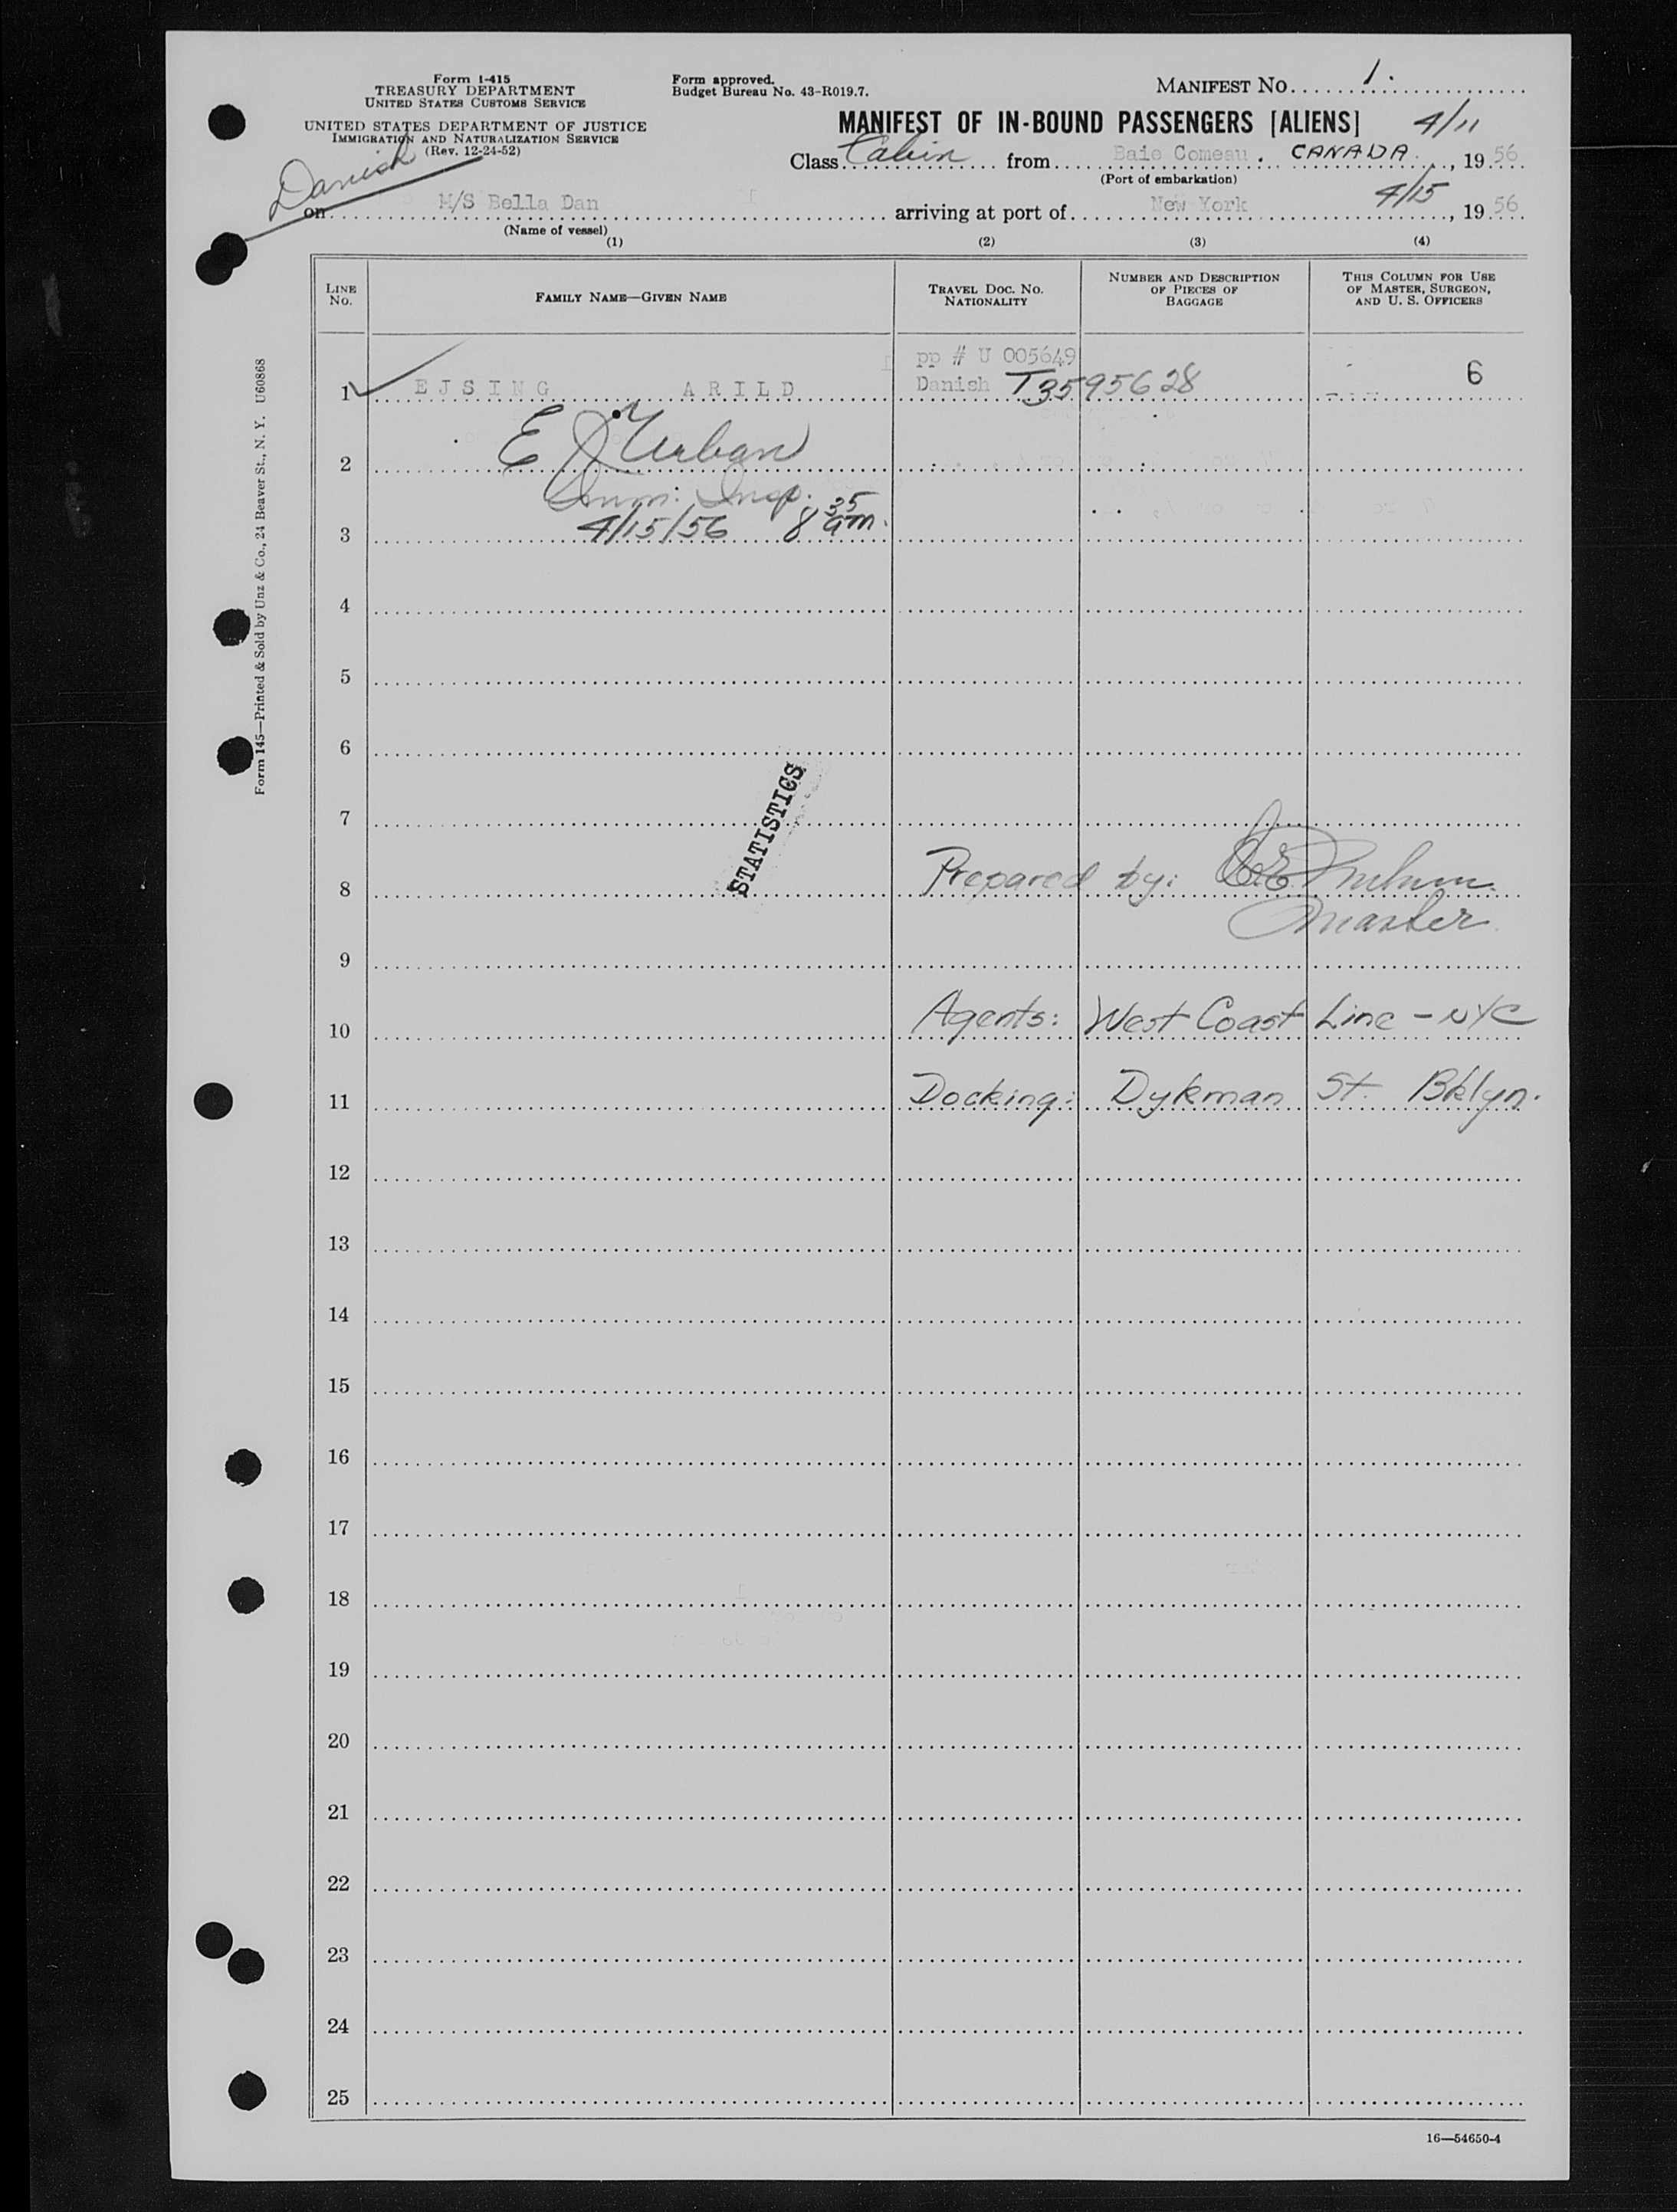 Form I-415
TREASURY DEPARTMENT
UNITED STATES CUSTOMS SERVICE
UNITED STATES DEPARTMENT OF JUSTICE
IMMIGRATION AND NATURALIZATION SERVICE
(Rev. 12-24-52)
Form approved.
Budget Bureau No. 43-R019.7.
MANIFEST NO. 1.
MANIFEST OF IN-BOUND PASSENGERS [ALIENS] 4/11
Class Cabin from Baie Comeau. CANADA, 1956
(Port of embarkation)
Danish
on M/S Bella Dan arriving at port of New York 4/15, 1956
(Name of vessel)
(1) (2) (3) (4)
LINE NO.
FAMILY NAME—GIVEN NAME
TRAVEL DOC. NO. NATIONALITY
NUMBER AND DESCRIPTION OF PIECES OF BAGGAGE
THIS COLUMN FOR USE OF MASTER, SURGEON, AND U. S. OFFICERS
pp # U 005649
1 EJSING ARILD Danish T3595628 6
2 E J Urban
Imm. Insp.
3 4/15/56 8 35 am.
4
5
6
7
STATISTICS
8 Prepared by:
Master
9
10 Agents: West Coast Line - NYC
11 Docking: Dykman St. Bklyn.
12
13
14
15
16
17
18
19
20
21
22
23
24
25
16—54650-4
Form 145—Printed & Sold by Unz & Co., 24 Beaver St., N. Y. U60868